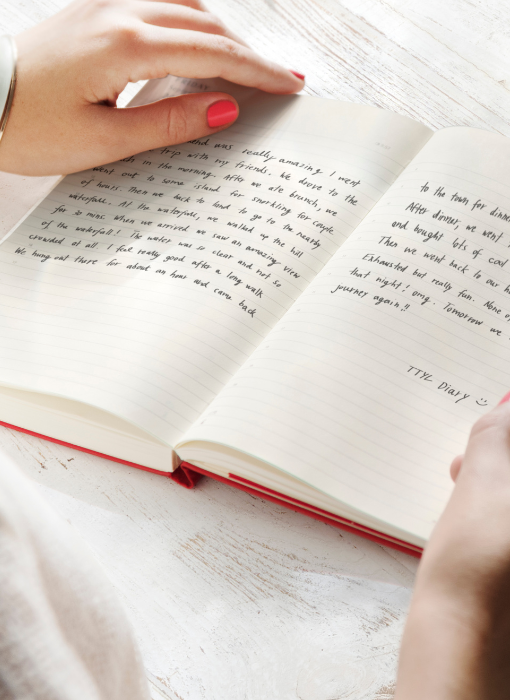 and was really amazing I went
trip with my friends. We drove to the
in the morning. After we ate brunch, we
went out to some island for snorkling for couple
of hours. Then we back to land to go to the nearby
waterfall. At the waterfall, we walked up the hill
for 30 mins. When we arrived we saw an amazing view
of the waterfall! The water was so clear and not so
crowded at all. I feel really good after a long walk
We hung out there for about an hour and came back
to the town for dinne
After dinner, we went
and bought lots of cool
Then we went back to our h
Exhausted but really fun. None o
that night! omg. Tomorrow we
journey again!!
TTYL Diary :)